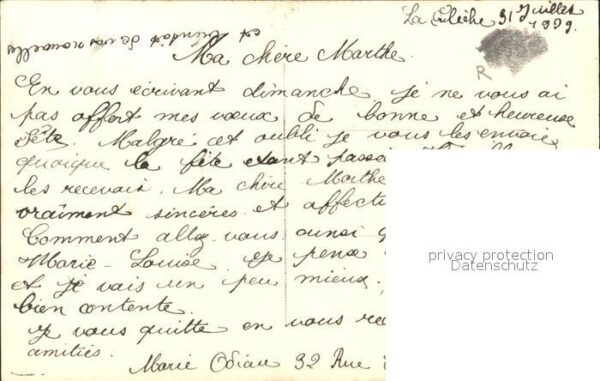 La Flèche 31 Juillet
1939.
et bientôt de vos nouvelles
Ma chère Marthe.
R
En vous écrivant dimanche je ne vous ai
pas offert mes vœux de bonne et heureuse
fête. Malgré cet oubli je vous les envoie
quoique la fête etant passé
les recevais. Ma chère Marthe
vraiment sincères et affecti
Comment allez-vous ainsi q
Marie-Louise je pense
et je vais un peu mieux.
bien contente.
Je vous quitte en vous
amitiés.
Marie Odiau 32 Rue
privacy protection
Datenschutz